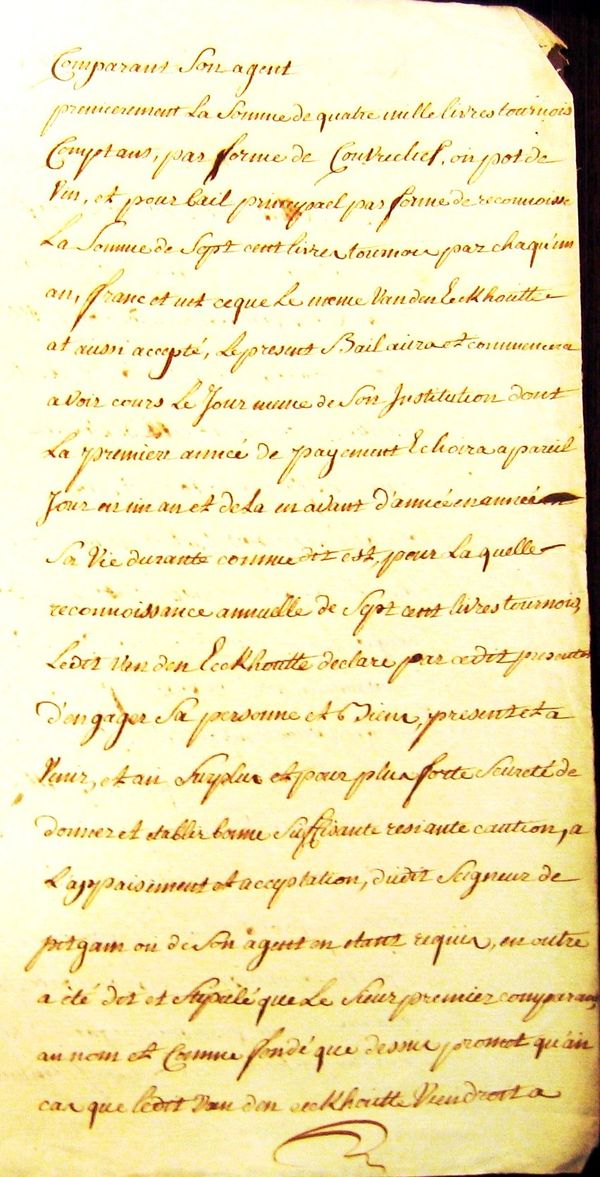 Comparant Son agent
premierement La Somme de quatre mille livres tournois
Comptans, par forme de Couvrechef, ou pot de
Vin, et pour bail principael par forme de reconnoisse
La Somme de Sept cent livres tournois par chaqu'un
an, franc et net ceque Le meme Van den Eeckhoutte
at aussi accepté, Le present Bail aura et commencera
avoir cours Le Jour meme de Son Institution dont
La premiere année de payement Echoira a pareil
Jour en un an et de La en avant d'année en année
Sa Vie durante comme dit est, pour La quelle
reconnoissance annuelle de Sept cent livres tournois,
Ledit Van den Eeckhoutte declare par cedit presente
d'engager Sa personne et Biens, present et a
Venir, et au Surplus et pour plus forte Seureté de
donner et etablir bonne Suffisante resiante caution, a
L'appaisement et acceptation, dudit Seigneur de
pitgam ou de Son agent en etant requis, en outre
a été dit et Stipulé que Le Sieur premier comparant,
au nom et Comme fondé que dessus promet qu'ain
cas que Ledit Van den eeckhoutte Viendroit a